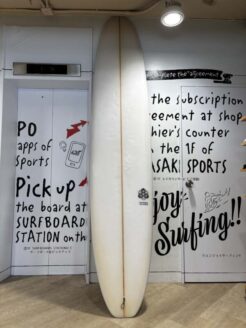 PO
apps of
Sports
Pick up
the board at
SURFBOARD
STATION on th
plete the "agreement"
the subscription
eement at shop
hier's counter
the 1F of
ASAKI SPORTS
joy
Surfing!!